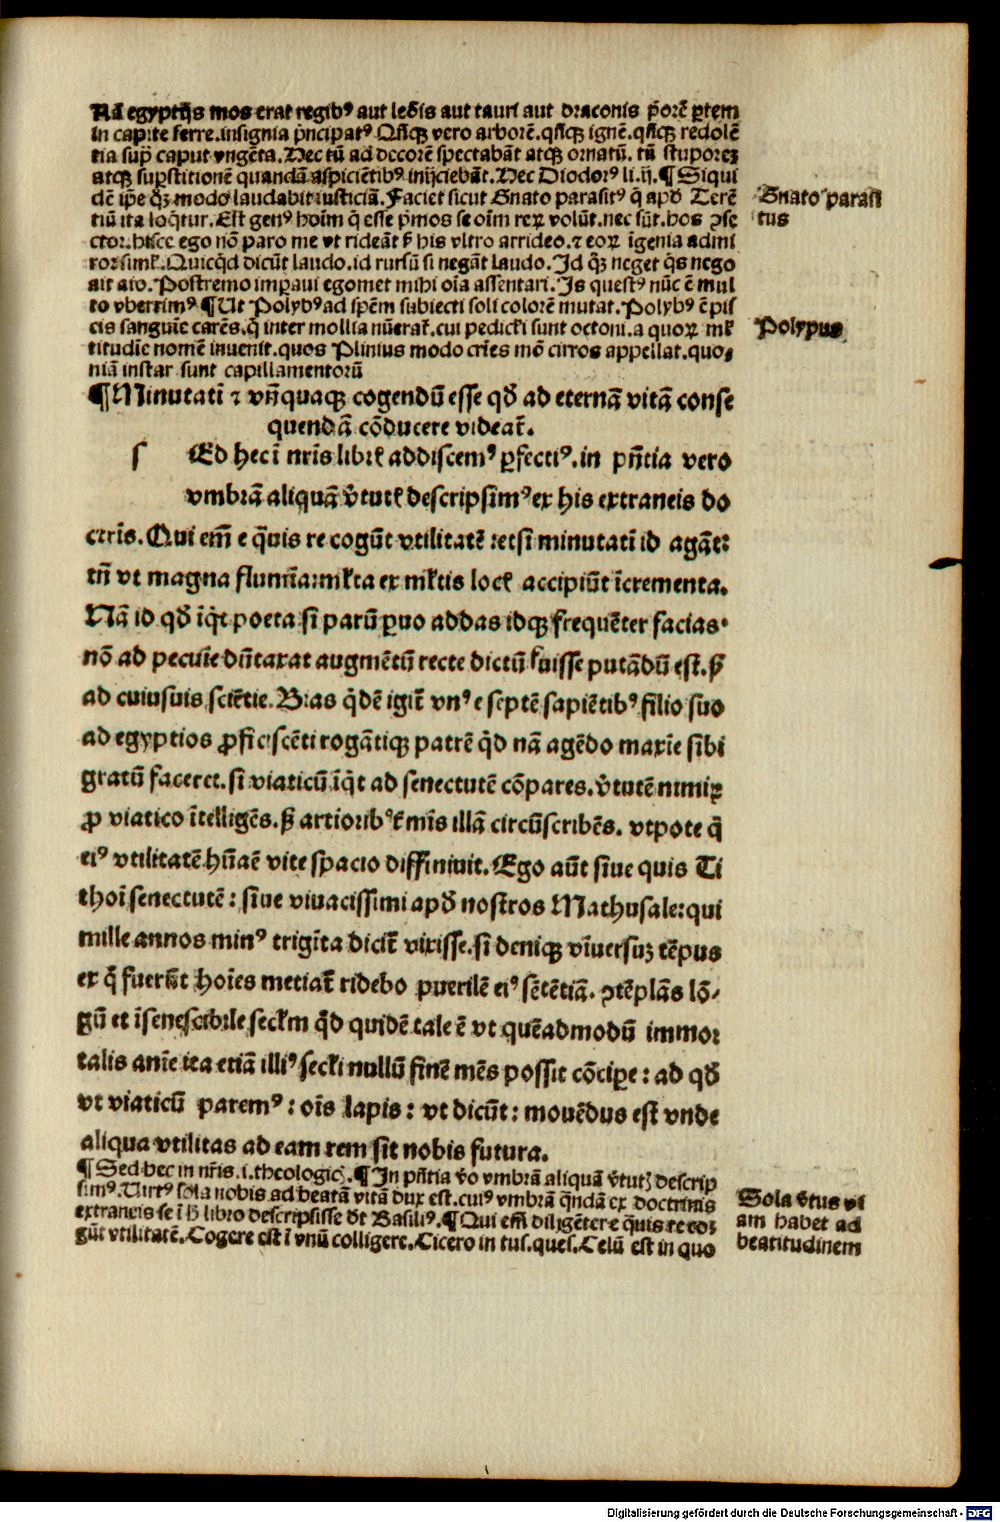 Nā egyptijs mos erat regibꝰ aut leōis aut tauri aut draconis p̄orē ꝑtem
in capite ferre. insignia p̄ncipatꝰ Qn̄qꝫ vero arborē. qn̄qꝫ ignē. qn̄qꝫ redolē
tia sup̄ caput vngēta. Hec tū ad decorē spectabāt atqꝫ ornatū. tū stuporeꝫ
atqꝫ suꝑstitionē quandā aspiciētibꝰ inijciebāt. Hec Diodorꝰ li. ij. ¶ Siqui
dē ip̄e qꝫ modo laudabit iusticiā. Faciet sicut Gnato parasitꝰ q̄ apđ Terē
tiū ita loq̄tur. Est genꝰ hoīm q̄ esse p̄mos se oīm reꝝ volūt. nec sūt. hos ꝯse
ctor. hisce ego nō paro me vt rideāt s̄ his vltro arrideo. ⁊ eoꝝ īgenia admi
ror simł. Quicq̄d dicūt laudo. id rursū si negāt laudo. Id qꝫ neget q̄s nego
ait aio. Postremo imꝑaui egomet mihi oīa assentari. Is questꝰ nūc ē mul
to vberrimꝰ ¶ Ut Polybꝰ ad spēm subiecti soli colorē mutat. Polybꝰ ē pis
cis sanguīe carēs. q̄ inter mollia nūerat̄. cui pedicłi sunt octoni. a quoꝝ mł
titudīe nomē inuenit. quos Plinius modo crīes mō cirros appellat. quo⸗
niā instar sunt capillamentorū
¶ Minutatī ⁊ vn̄quaqꝫ cogendū esse qđ ad eternā vitā conse
quendā cōducere videat̄.
s Ed hec ī nr̄is librꝭ addiscemꝰ ꝑfectiꝰ. in pn̄tia vero
vmbrā aliquā v̄tutꝭ descripsimꝰ ex his extraneis do
ctrīs. Qui em̄ e q̄uis re cogūt vtilitatē : etsi minutatī id agāt:
tn̄ vt magna flumīa: młta ex młtis locꝭ accipiūt īcrementa.
Nā id qđ īq̄t poeta si parū ꝑuo addas idqꝫ frequēter facias.
nō ad pecuīe dūtaxat augmētū recte dictū fuisse putādū est. s̄
ad cuiusuis sciētie. Bias q̄dē igit̄ vnꝰ e septē sapiētibꝰ filio suo
ad egyptios ꝓficiscēti rogātiqꝫ patrē q̄d nā agēdo maxīe sibi
gratū faceret. si viaticū īq̄t ad senectutē cōpares. v̄tutē nimiꝝ
ꝓ viatico ītelligēs. s̄ artioribꝰ łmīs illā circūscribēs. vtpote q̄
eiꝰ vtilitatē hūaē vite spacio diffiniuit. Ego aūt siue quis Ti
thoī senectutē : siue viuacissimi apđ nostros Mathusale: qui
mille annos minꝰ trigīta dicit̄ vixisse. si deniqꝫ vīuersuꝫ tēpus
ex q̄ fuerūt hoīes metiat̄ ridebo puerilē eiꝰ sētētiā. ꝯtēplās lō⸗
gū et īsenescibile secłm q̄d quidē tale ē vt quēadmodū immor
talis anīe ita etiā illiꝰ secłi nullū finē mēs possit cōciꝑe : ad qđ
vt viaticū paremꝰ : oīs lapis : vt dicūt : mouēdus est vnde
aliqua vtilitas ad eam rem sit nobis futura.
¶ Sed hec in nr̄is .i. theologicꝭ. ¶ In pn̄tia v̄o vmbrā aliquā v̄tutꝭ descrip
simꝰ. Uirtꝰ sola nobis ad beatā vitā dux est. cuiꝰ vmbrā q̄ndā ex doctrinis
extraneis se ī h̄ libro descripsisse d̄t Basiliꝰ. ¶ Qui em̄ diligēter e q̄uis re co⸗
gūt vtilitatē. Cogere est ī vnū colligere. Cicero in tus. ques. Celū est in quo
Gnato parasi
tus
Polypus
Sola v̄tus vi
am habet ad
beatitudinem
Digitalisierung gefördert durch die Deutsche Forschungsgemeinschaft - DFG